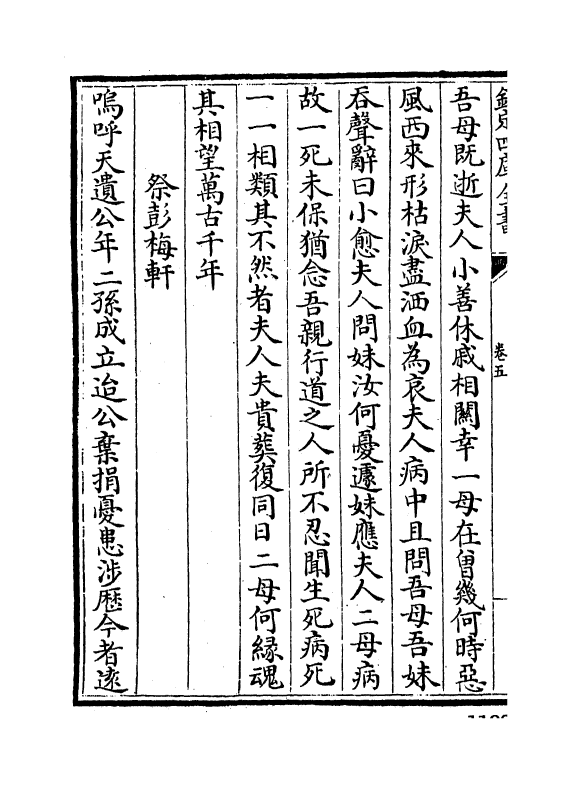 欽定四庫全書
卷五
吾母既逝夫人小善休戚相關幸一母在曾幾何時惡
風西來形枯淚盡洒血為哀夫人病中且問吾母吾妹
吞聲辭曰小愈夫人問妹汝何憂遽妹應夫人二母病
故一死未保猶念吾親行道之人所不忍聞生死病死
一一相類其不然者夫人夫貴葬復同日二母何縁魂
其相望萬古千年
祭彭梅軒
嗚呼天遺公年二孫成立迨公棄捐憂患涉歴今者逺